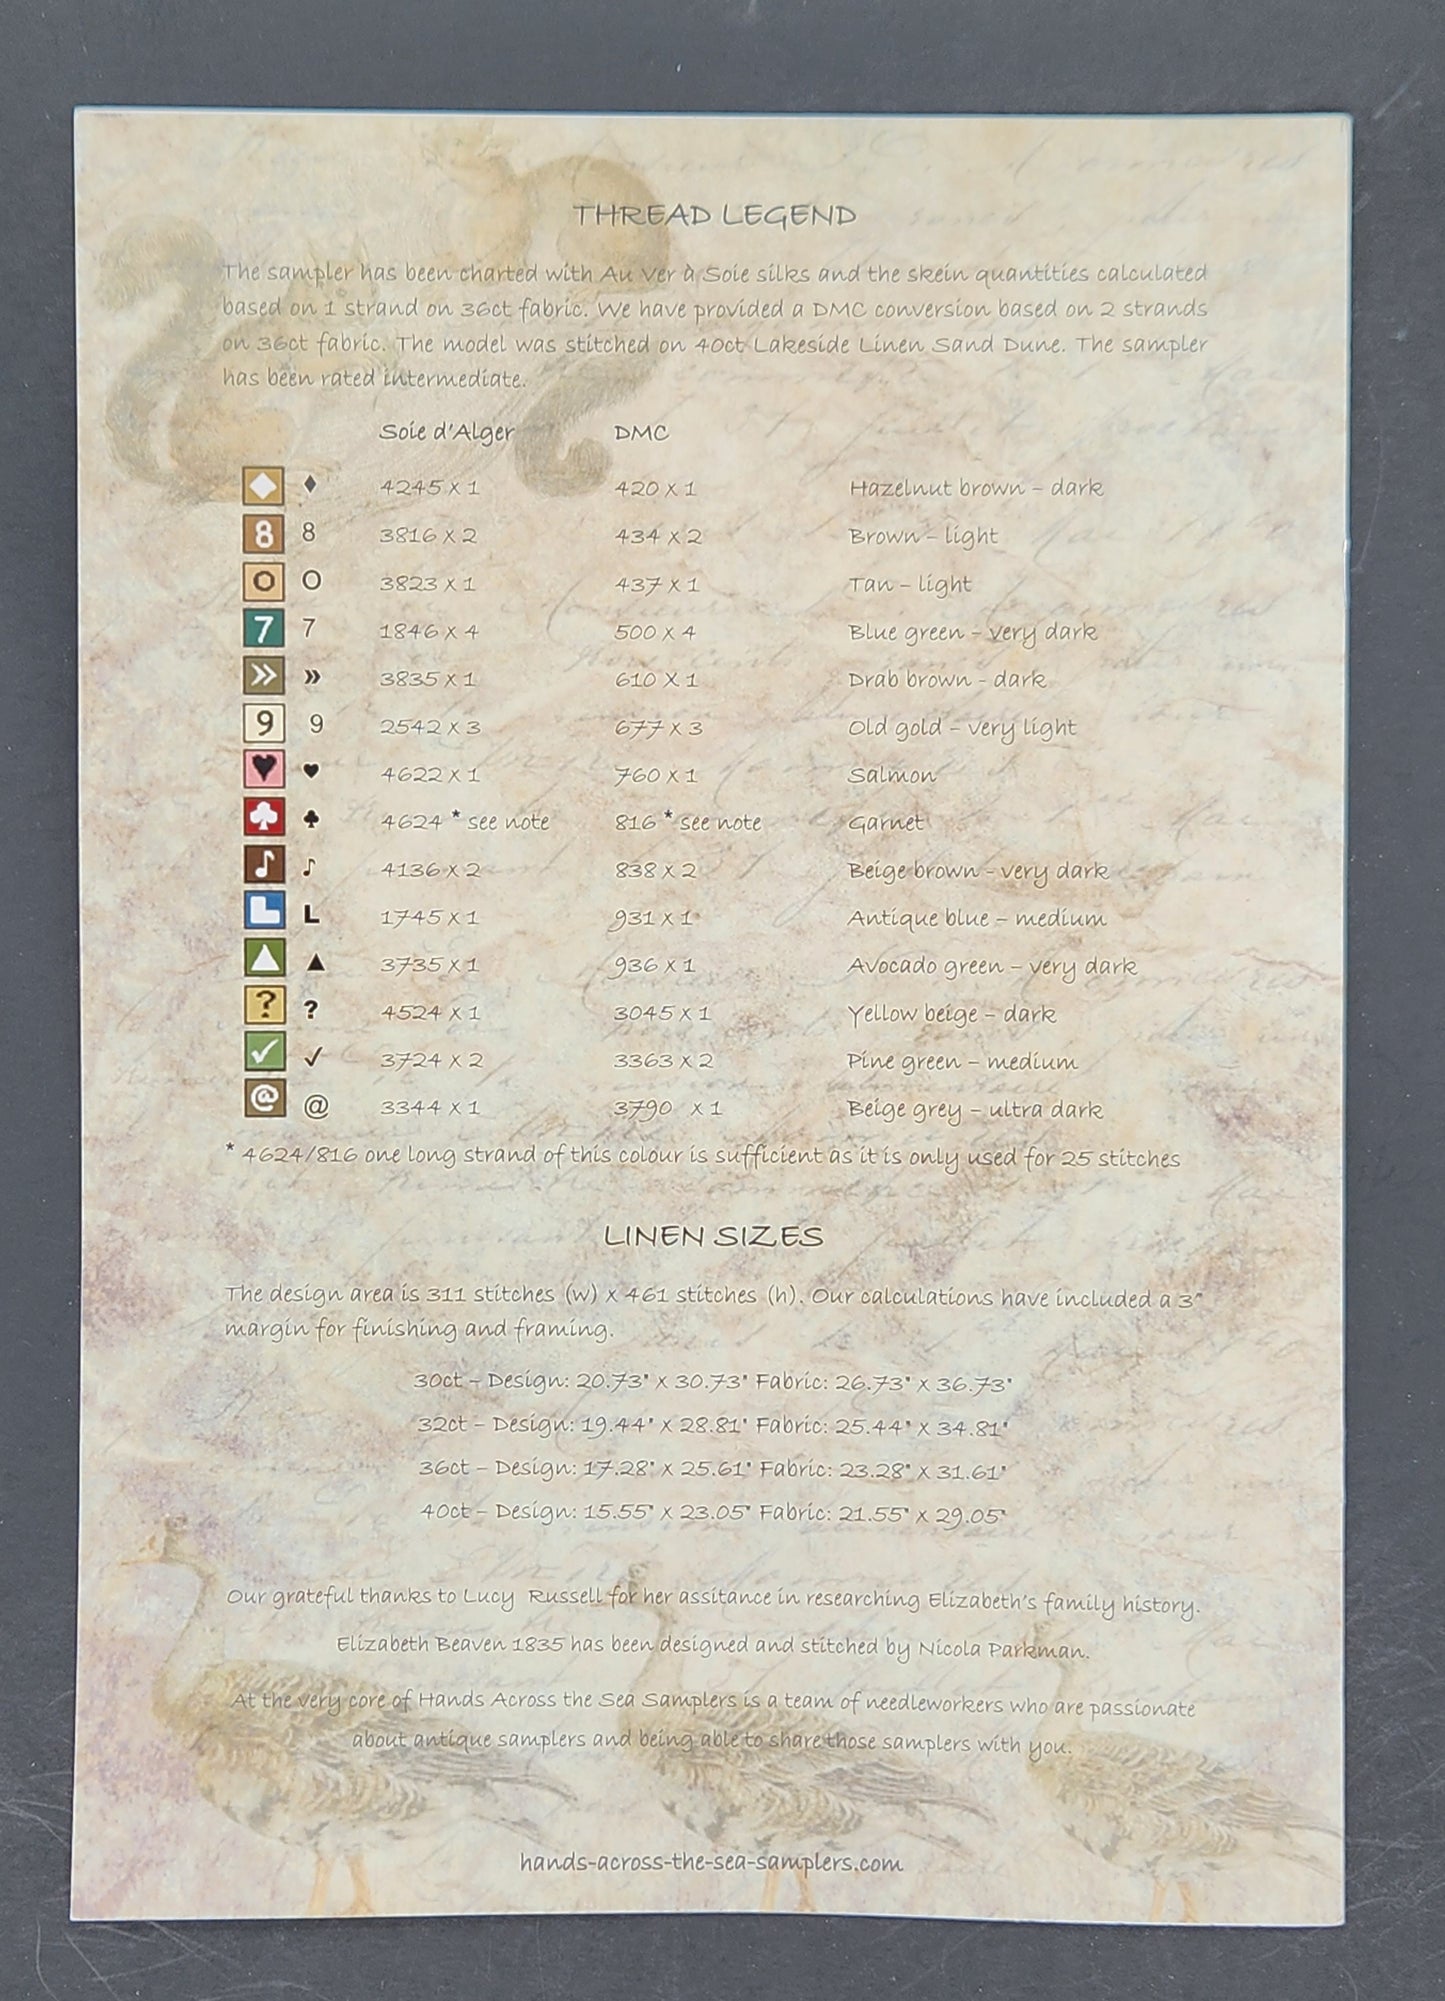 THREAD LEGEND
The sampler has been charted with Au Ver à Soie silks and the skein quantities calculated
based on 1 strand on 36ct fabric. We have provided a DMC conversion based on 2 strands
on 36ct fabric. The model was stitched on 40ct Lakeside Linen Sand Dune. The sampler
has been rated intermediate.
Soie d'Alger DMC
◆ ♦ 4245 x 1 420 x 1 Hazelnut brown – dark
8 8 3816 x 2 434 x 2 Brown – light
O O 3823 x 1 437 x 1 Tan – light
7 7 1846 x 4 500 x 4 Blue green – very dark
» » 3835 x 1 610 X 1 Drab brown - dark
9 9 2542 x 3 677 x 3 Old gold – very light
♥ ♥ 4622 x 1 760 x 1 Salmon
♣ ♣ 4624 * see note 816 * see note Garnet
♪ ♪ 4136 x 2 838 x 2 Beige brown - very dark
L L 1745 x 1 931 x 1 Antique blue – medium
▲ ▲ 3735 x 1 936 x 1 Avocado green – very dark
? ? 4524 x 1 3045 x 1 Yellow beige – dark
✓ ✓ 3724 x 2 3363 x 2 Pine green – medium
@ @ 3344 x 1 3790 x 1 Beige grey – ultra dark
* 4624/816 one long strand of this colour is sufficient as it is only used for 25 stitches
LINEN SIZES
The design area is 311 stitches (w) x 461 stitches (h). Our calculations have included a 3"
margin for finishing and framing.
30ct – Design: 20.73" x 30.73" Fabric: 26.73" x 36.73"
32ct – Design: 19.44" x 28.81" Fabric: 25.44" x 34.81"
36ct – Design: 17.28" x 25.61" Fabric: 23.28" x 31.61"
40ct – Design: 15.55" x 23.05" Fabric: 21.55" x 29.05"
Our grateful thanks to Lucy Russell for her assitance in researching Elizabeth's family history.
Elizabeth Beaven 1835 has been designed and stitched by Nicola Parkman.
At the very core of Hands Across the Sea Samplers is a team of needleworkers who are passionate
about antique samplers and being able to share those samplers with you.
hands-across-the-sea-samplers.com